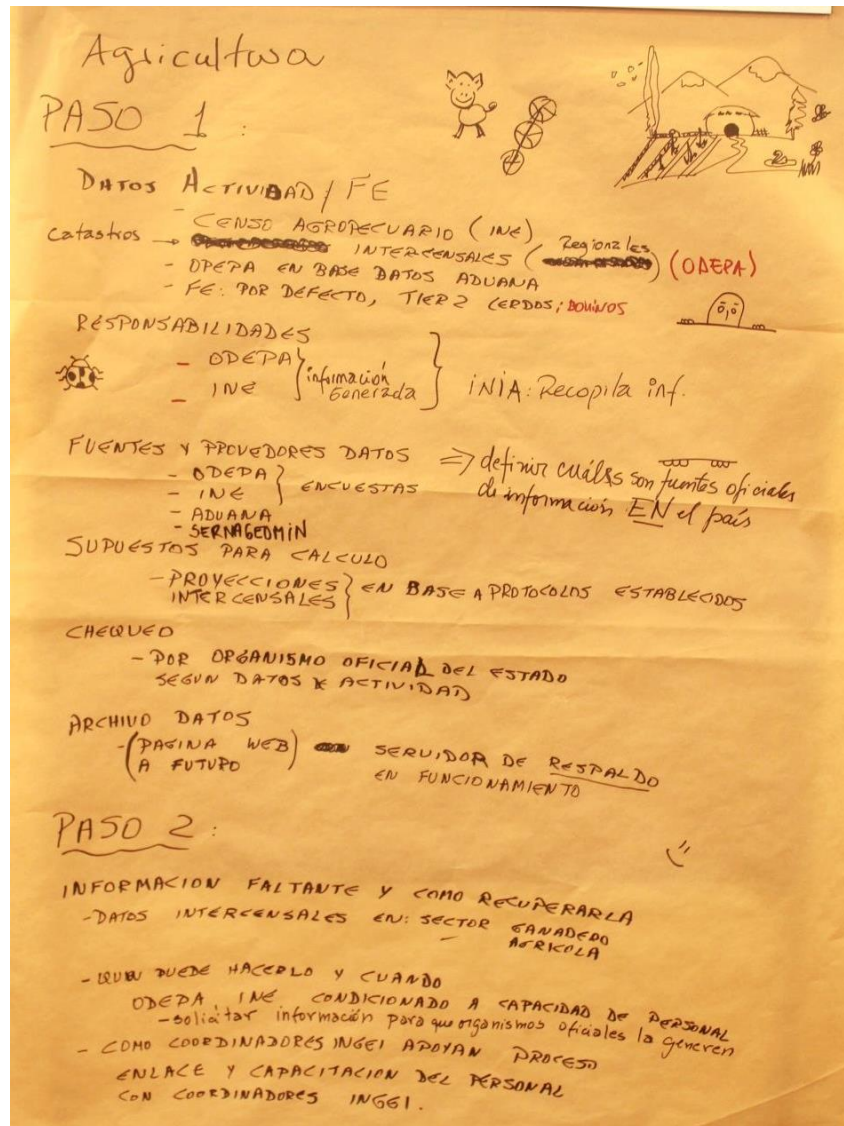 Agricultura
PASO 1:
DATOS ACTIVIDAD / FE
- CENSO AGROPECUARIO (INE)
Catastros → INTERCENSALES (Regionales) (ODEPA)
- ODEPA EN BASE DATOS ADUANA
- FE: POR DEFECTO, TIER 2 CERDOS; BOVINOS
RESPONSABILIDADES
- ODEPA
- INE
información Generada
INIA: Recopila inf.
FUENTES Y PROVEDORES DATOS ⇒ definir cuáles son fuentes oficiales
de información EN el país
- ODEPA
- INE } ENCUESTAS
- ADUANA
- SERNAGEOMIN
SUPUESTOS PARA CALCULO
- PROYECCIONES
INTERCENSALES } EN BASE A PROTOCOLOS ESTABLECIDOS
CHEQUEO
- POR ORGANISMO OFICIAL DEL ESTADO
SEGUN DATOS ACTIVIDAD
ARCHIVO DATOS
- (PAGINA WEB) SERVIDOR DE RESPALDO
(A FUTURO EN FUNCIONAMIENTO
PASO 2:
INFORMACION FALTANTE Y COMO RECUPERARLA
- DATOS INTERCENSALES EN: SECTOR GANADERO
AGRICOLA
- QUIEN PUEDE HACERLO Y CUANDO
ODEPA, INE CONDICIONADO A CAPACIDAD DE PERSONAL
- solicitar información para que organismos oficiales la generen
- COMO COORDINADORES INGEI APOYAN PROCESO
ENLACE Y CAPACITACION DEL PERSONAL
CON COORDINADORES INGEI.